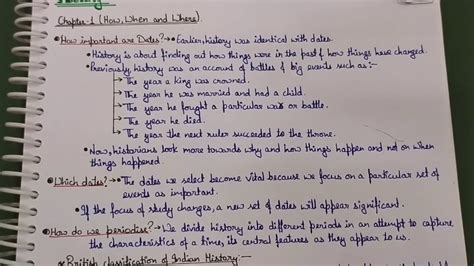 Chapter-1 (How, When and Where)
How important are Dates? → • Earlier, history was identical with dates.
• History is about finding out how things were in the past & how things have changed.
• Previously history was an account of battles & big events such as:-
→ The year a king was crowned.
→ The year he was married and had a child.
→ The year he fought a particular war or battle.
→ The year he died.
→ The year the next ruler succeeded to the throne.
• Now, historians look more towards why and how things happen and not on when
things happened.
Which dates? → • The dates we select become vital because we focus on a particular set of
events as important.
• If the focus of study changes, a new set of dates will appear significant.
How do we periodise? → We divide history into different periods in an attempt to capture
the characteristics of a time, its central features as they appear to us.
British classification of Indian History:-